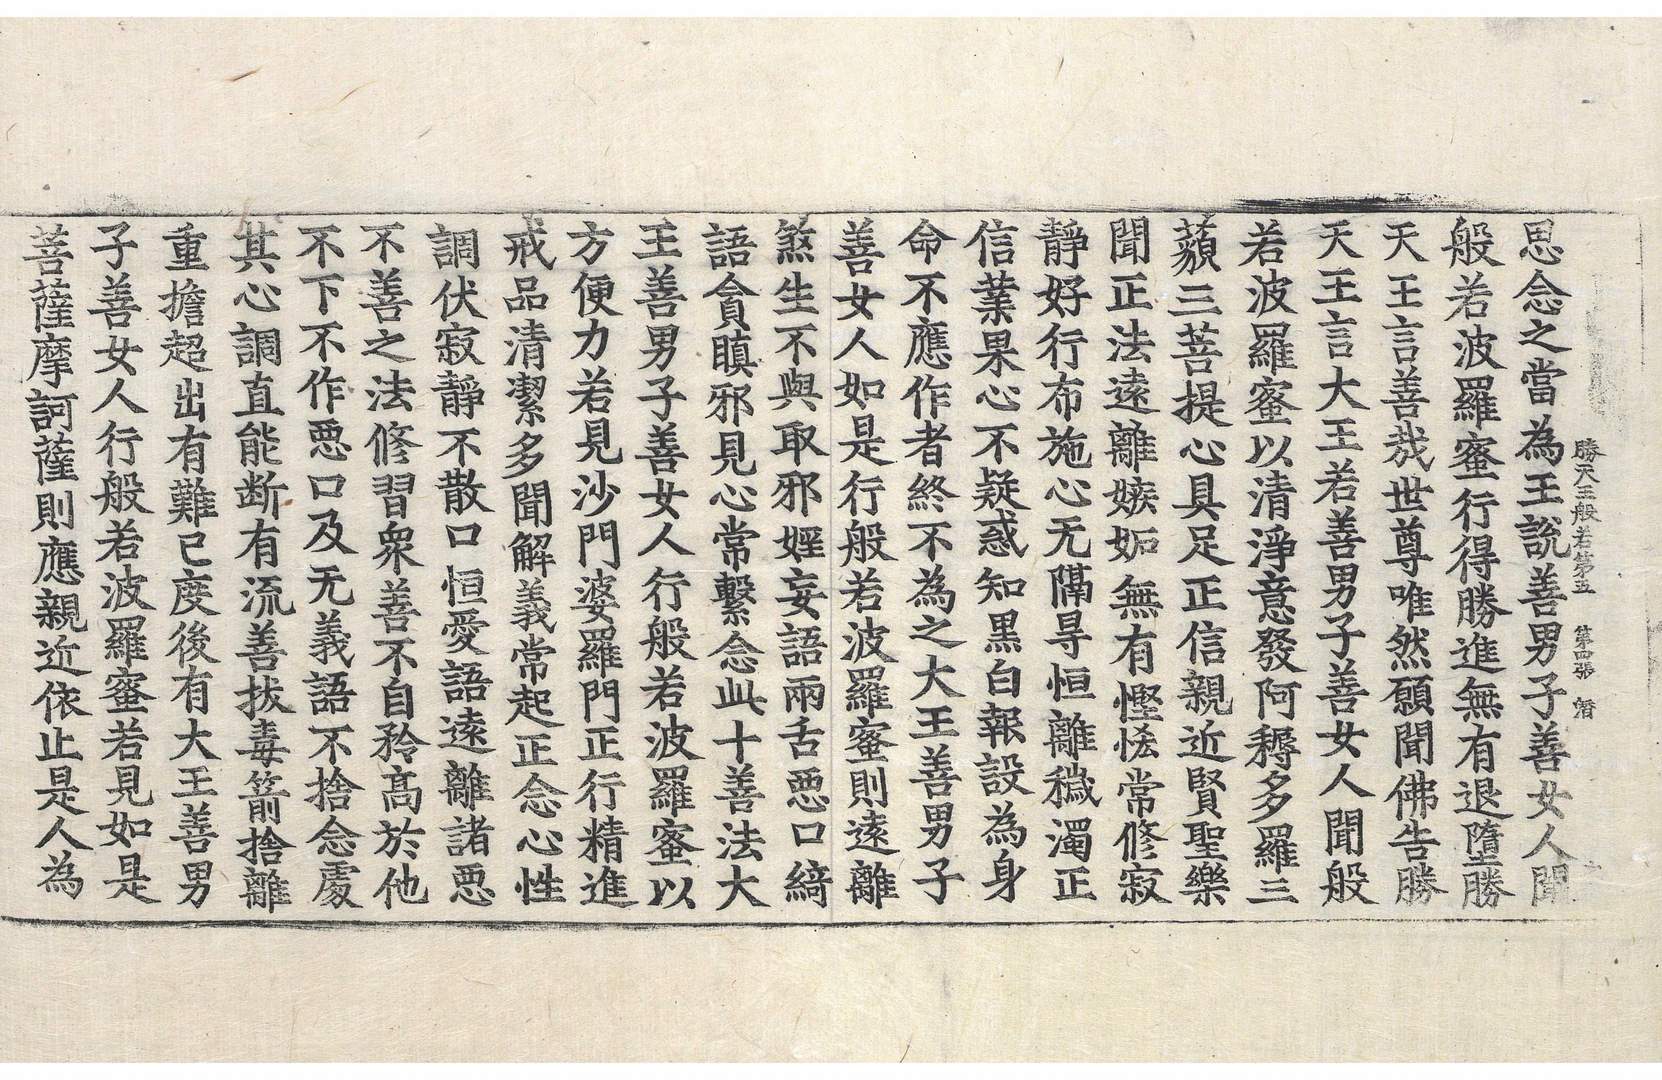 勝天王般若第五 第四張 潛
思念之當為王說善男子善女人聞
般若波羅蜜行得勝進無有退墮勝
天王言善哉世尊唯然願聞佛告勝
天王言大王若善男子善女人聞般
若波羅蜜以清淨意發阿耨多羅三
藐三菩提心具足正信親近賢聖樂
聞正法遠離嫉妬無有慳悋常修寂
靜好行布施心无隔㝵恒離穢濁正
信業果心不疑惑知黒白報設為身
命不應作者終不為之大王善男子
善女人如是行般若波羅蜜則遠離
煞生不與取邪婬妄語兩舌惡口綺
語貪瞋邪見心常繫念此十善法大
王善男子善女人行般若波羅蜜以
方便力若見沙門婆羅門正行精進
戒品清潔多聞解義常起正念心性
調伏寂靜不散口恒愛語遠離諸惡
不善之法修習衆善不自矜高於他
不下不作惡口及无義語不捨念處
其心調直能断有流善拔毒箭捨離
重擔超出有難已度後有大王善男
子善女人行般若波羅蜜若見如是
菩薩摩訶薩則應親近依止是人為